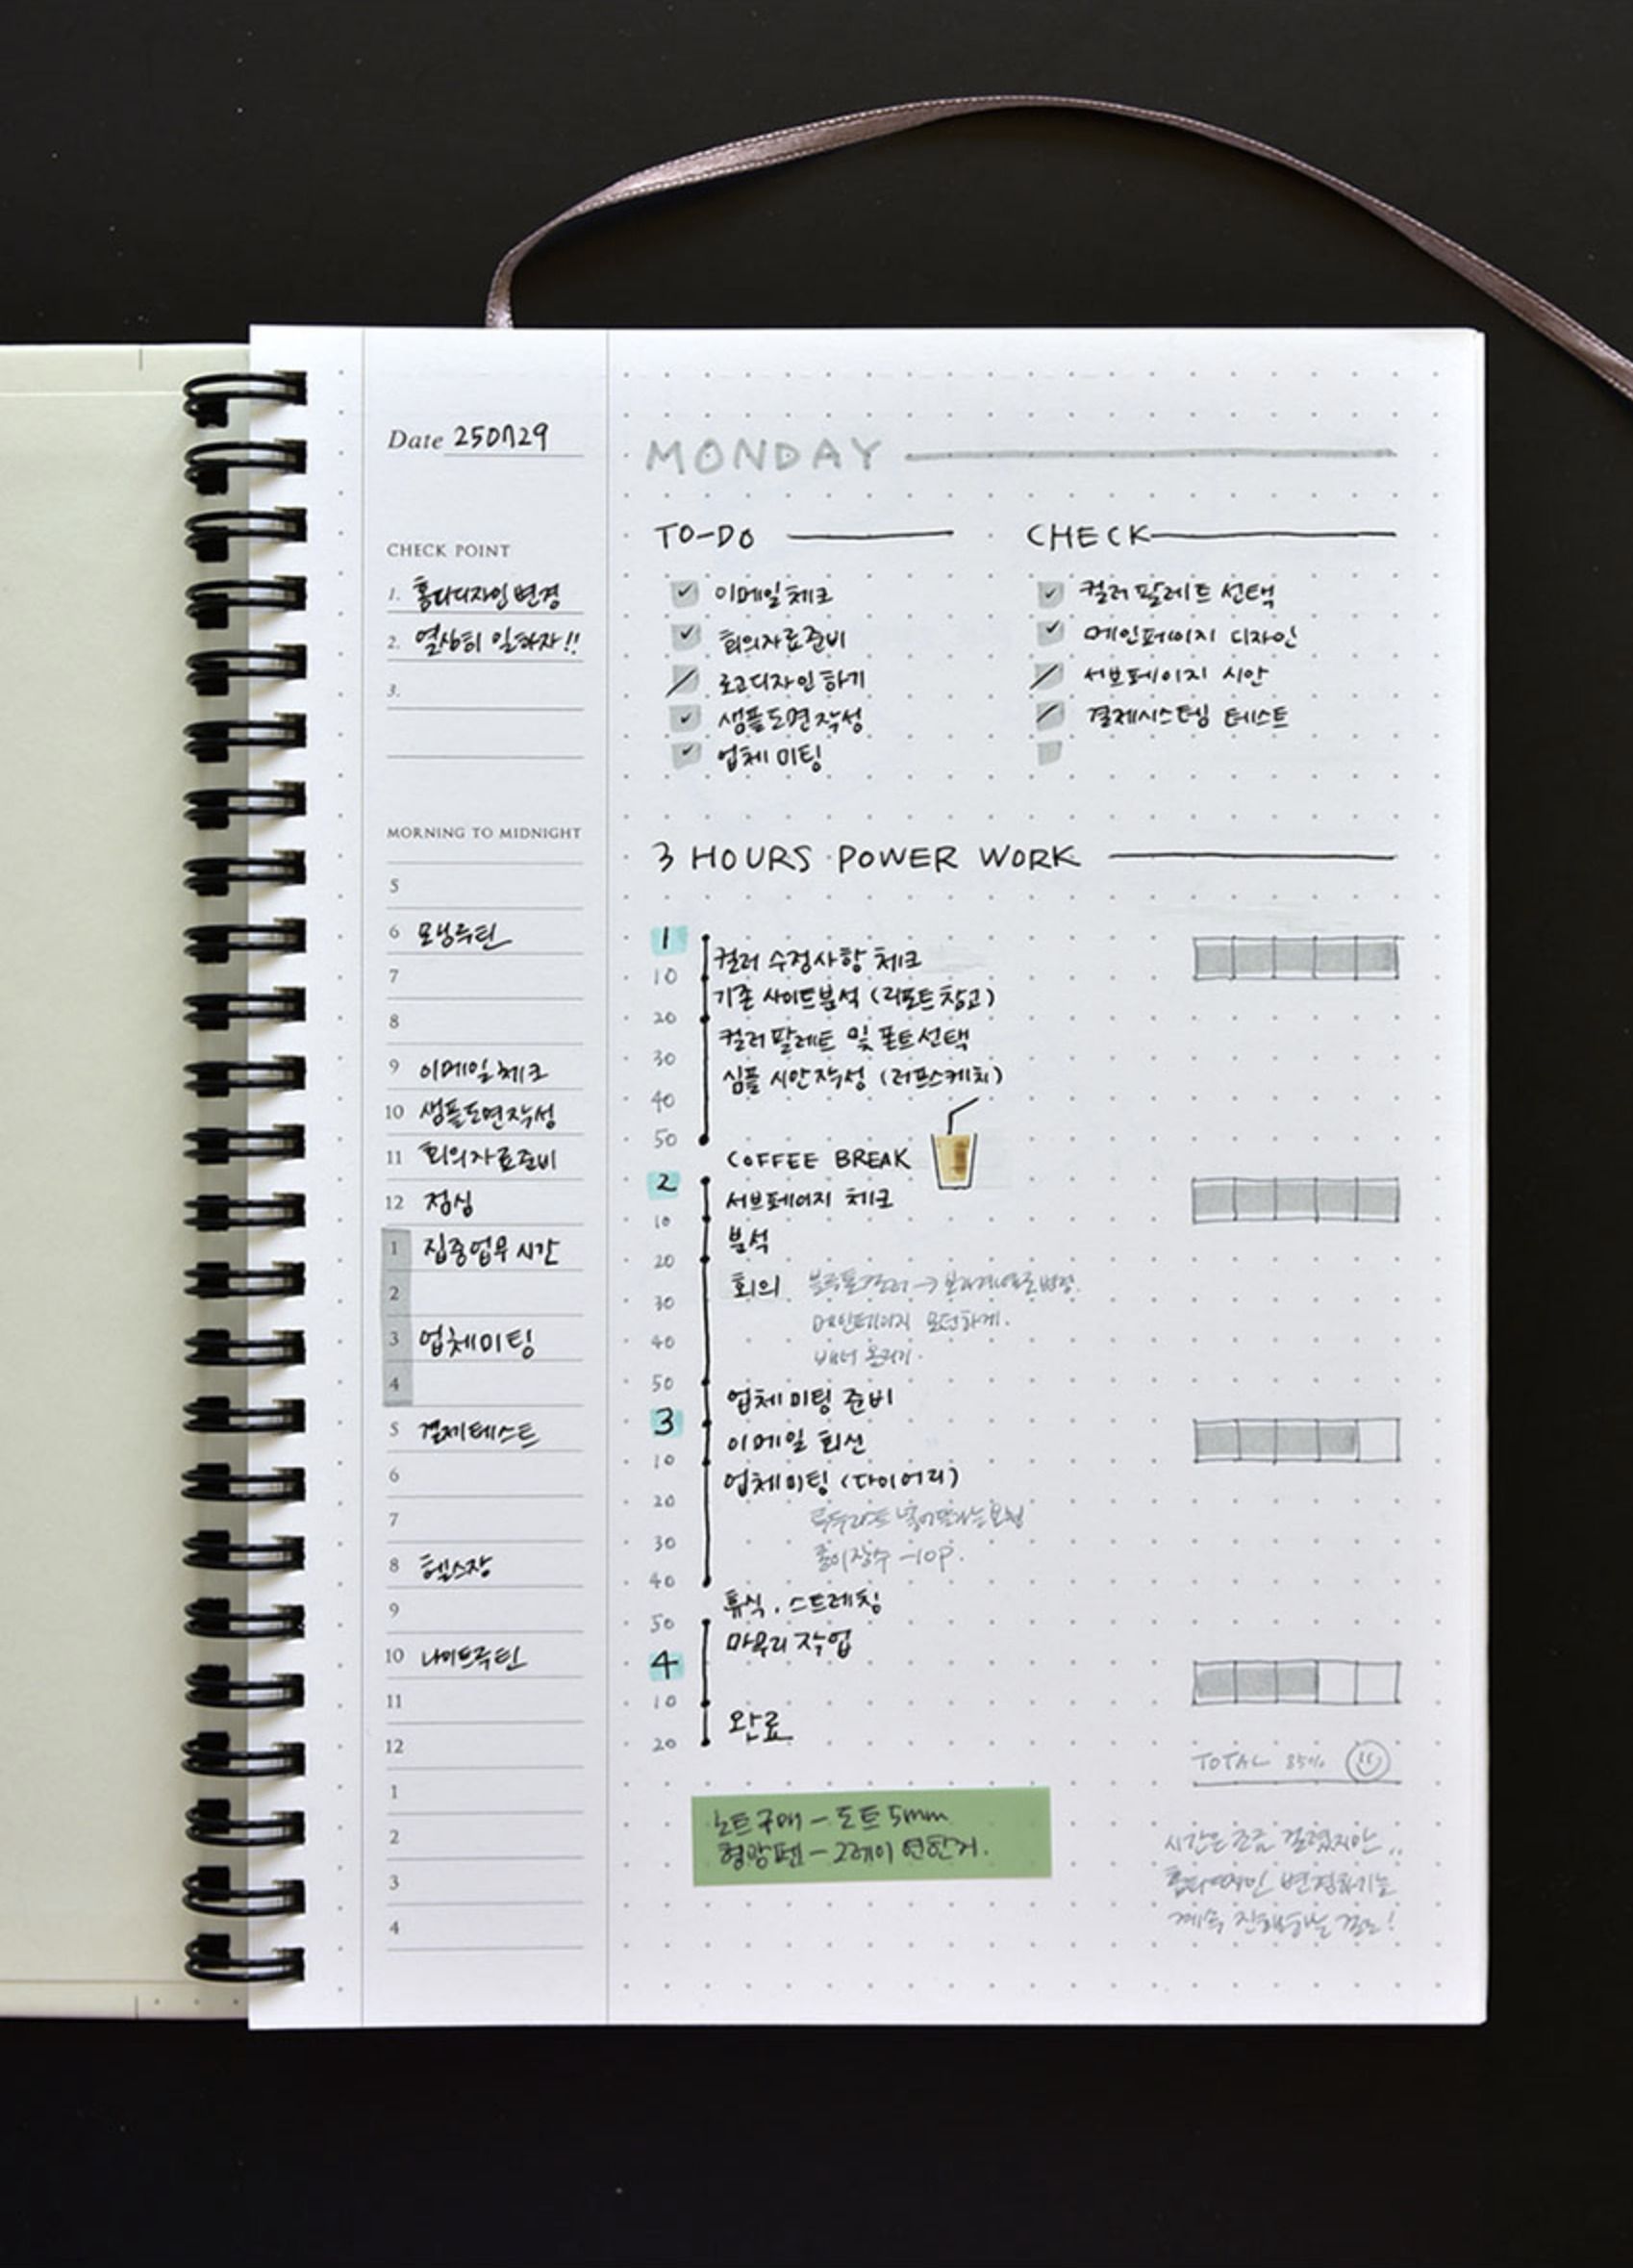 Date 250729
CHECK POINT
1. 홈디디자인 변경
2. 열심히 일하자!!
3.
MORNING TO MIDNIGHT
5
6 모닝루틴
7
8
9 이메일 체크
10 샘플도면작성
11 회의자료준비
12 점심
1 집중업무 시간
2
3 업체미팅
4
5 결제테스트
6
7
8 헬스장
9
10 나이트루틴
11
12
1
2
3
4
MONDAY
TO-DO
이메일 체크
회의자료준비
로고디자인 하기
샘플도면작성
업체 미팅
CHECK
컬러 팔레트 선택
메인페이지 디자인
서브페이지 시안
결제시스템 테스트
3 HOURS POWER WORK
1
컬러 수정사항 체크
10
기존 사이트분석 (리포트참고)
20
컬러 팔레트 및 폰트선택
30
심플 시안작성 (러프스케치)
40
50
COFFEE BREAK
2
서브페이지 체크
10
분석
20
회의
30
메인페이지 모던하게.
40
배너 올리기.
50
업체 미팅 준비
3
이메일 회신
10
업체미팅 (다이어리)
20
30
종이장수 -10P.
40
휴식. 스트레칭
50
마무리 작업
4
10
완료
20
TOTAL 85%
노트구매 - 도트 5mm
형광펜 - 그레이 연한거.
시간은 조금 걸렸지만..
변경하기는
계속 진행하는 걸로!